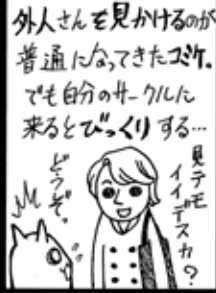 外人さんを見かけるのが
普通になってきたコミケ。
でも自分のサークルに
来るとびっくりする…
見テモ
イイデスカ？
どうぞ。